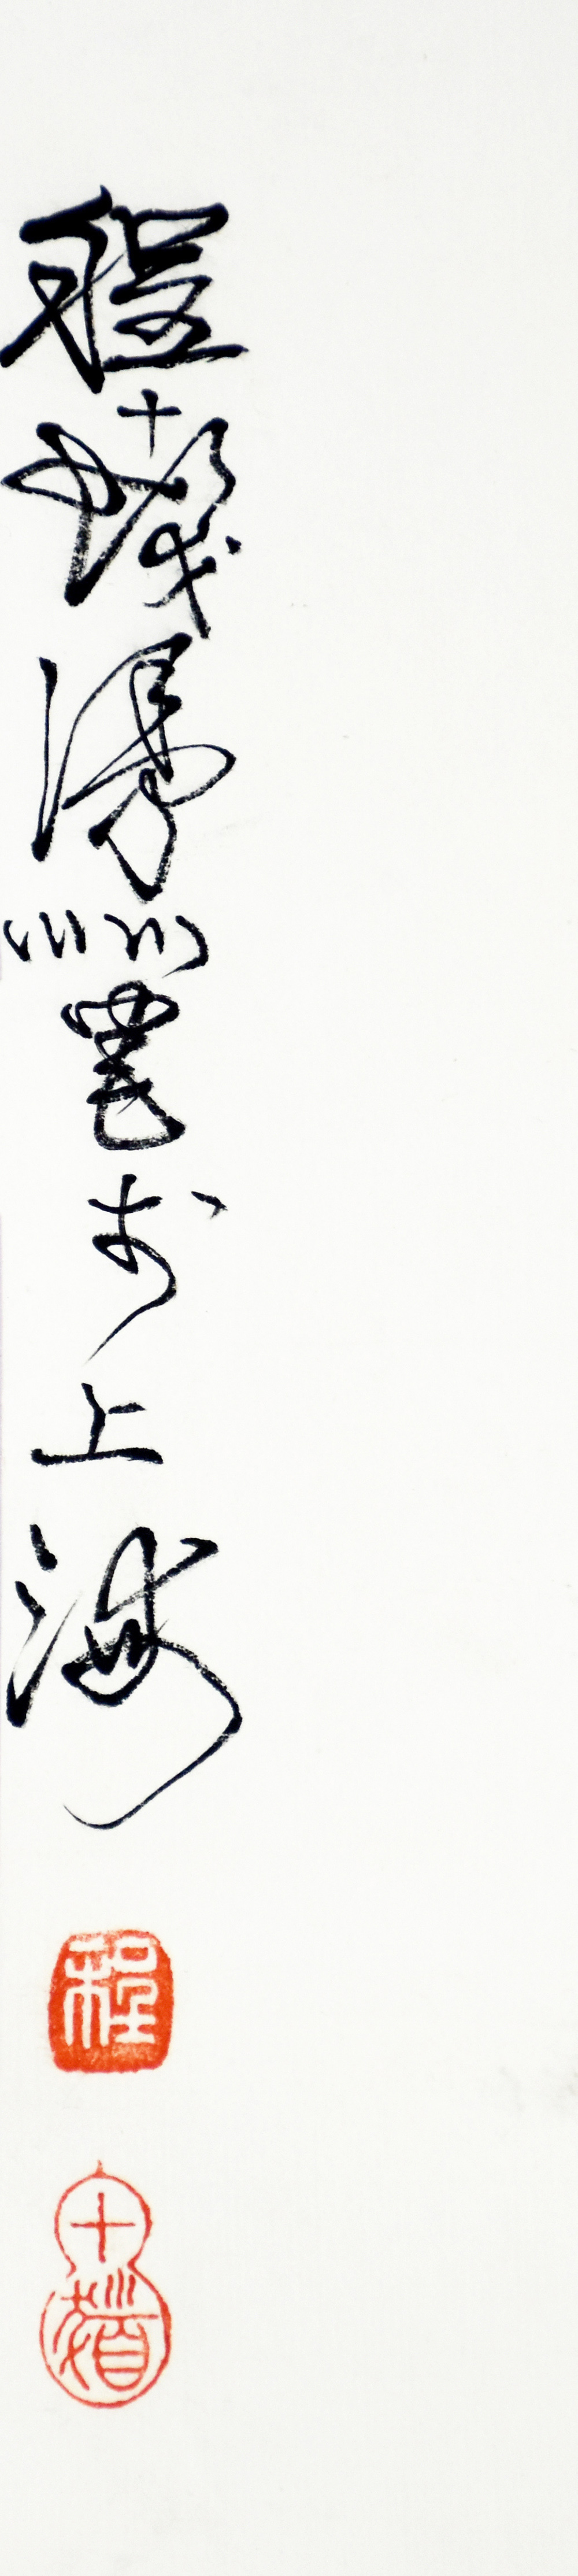 程十髮漫筆於上海
程
十髮